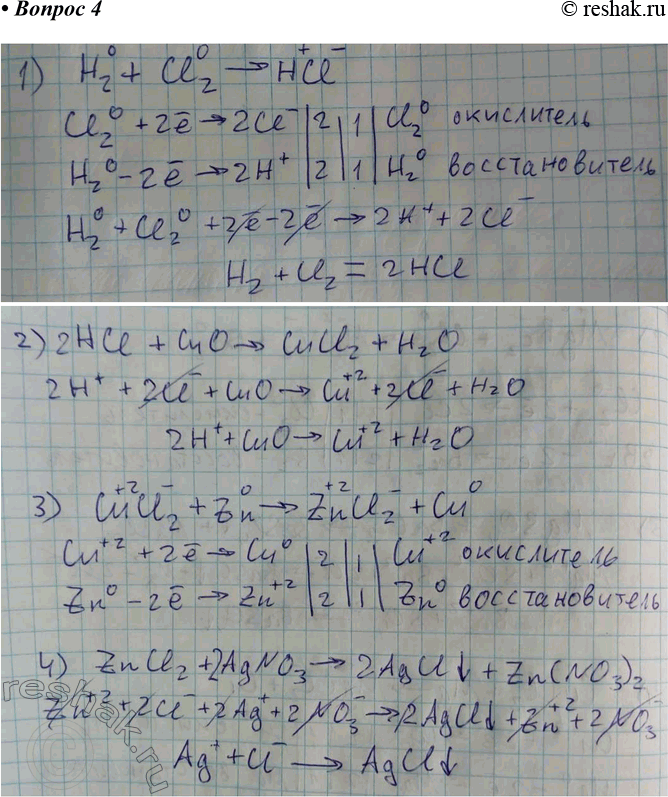 • Вопрос 4
© reshak.ru
1) H₂⁰ + Cl₂⁰ → H⁺Cl⁻
Cl₂⁰ + 2ē → 2Cl⁻ | 2 | 1 | Cl₂⁰ окислитель
H₂⁰ - 2ē → 2H⁺ | 2 | 1 | H₂⁰ восстановитель
H₂⁰ + Cl₂⁰ + 2ē - 2ē → 2H⁺ + 2Cl⁻
H₂ + Cl₂ = 2HCl
2) 2HCl + CuO → CuCl₂ + H₂O
2H⁺ + 2Cl⁻ + CuO → Cu⁺² + 2Cl⁻ + H₂O
2H⁺ + CuO → Cu⁺² + H₂O
3) Cu⁺²Cl₂⁻ + Zn⁰ → Zn⁺²Cl₂⁻ + Cu⁰
Cu⁺² + 2ē → Cu⁰ | 2 | 1 | Cu⁺² окислитель
Zn⁰ - 2ē → Zn⁺² | 2 | 1 | Zn⁰ восстановитель
4) ZnCl₂ + 2AgNO₃ → 2AgCl↓ + Zn(NO₃)₂
Zn⁺² + 2Cl⁻ + 2Ag⁺ + 2NO₃⁻ → 2AgCl↓ + Zn⁺² + 2NO₃⁻
Ag⁺ + Cl⁻ → AgCl↓
reshak.ru